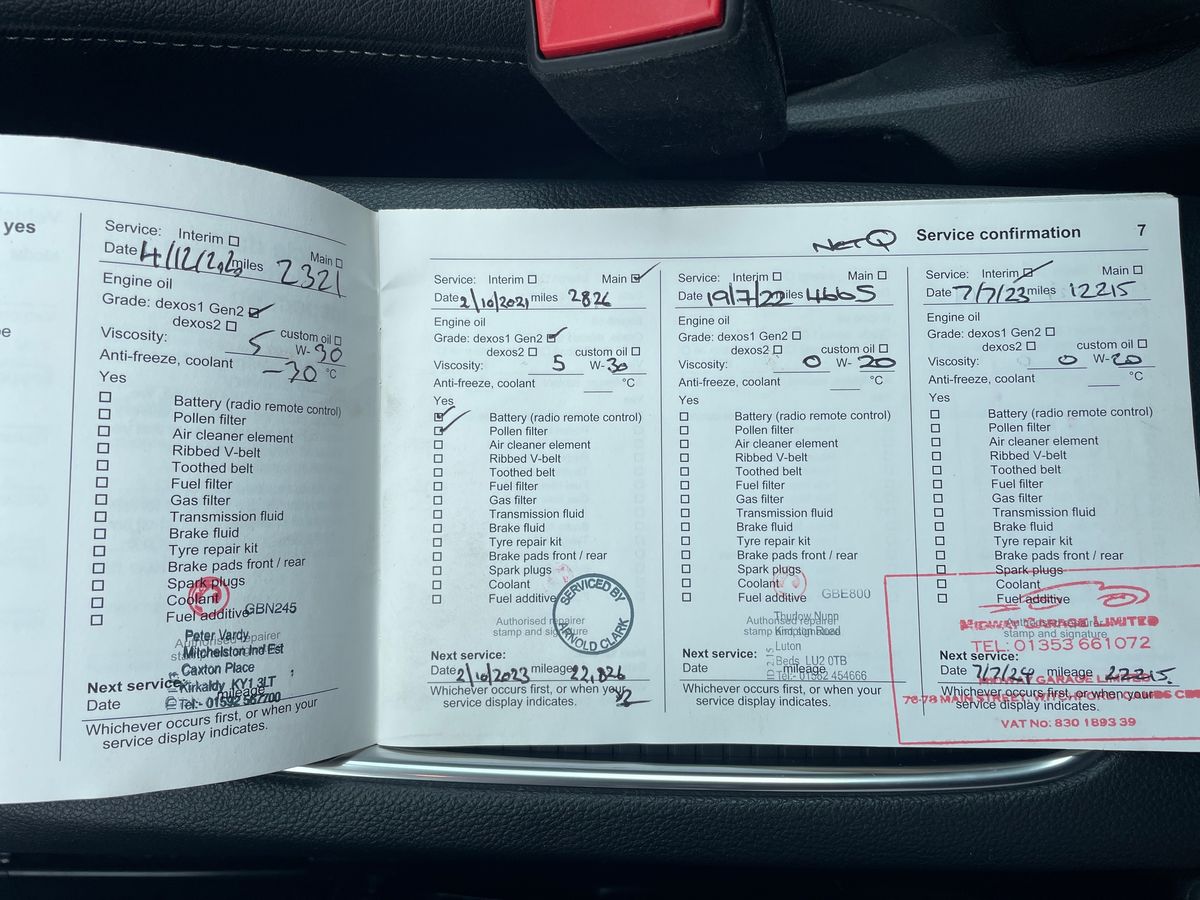 yes
Service: Interim
Main
Date 4/12/20 miles 2321
Engine oil
Grade: dexos1 Gen2
dexos2
custom oil
Viscosity: 5 W- 30
Anti-freeze, coolant -30 °C
Yes
Battery (radio remote control)
Pollen filter
Air cleaner element
Ribbed V-belt
Toothed belt
Fuel filter
Gas filter
Transmission fluid
Brake fluid
Tyre repair kit
Brake pads front / rear
Spark plugs
Coolant
Fuel additive
GBN245
Authorised repairer
Peter Vardy
Mitchelston Ind Est
Caxton Place
Kirkaldy KY1 3LT
Tel:- 01592 567700
Next service:
Date mileage
Whichever occurs first, or when your
service display indicates.
NetQ
Service confirmation 7
Service: Interim Main
Date 2/10/2021 miles 2826
Engine oil
Grade: dexos1 Gen2
dexos2 custom oil
Viscosity: 5 W- 30
Anti-freeze, coolant °C
Yes
Battery (radio remote control)
Pollen filter
Air cleaner element
Ribbed V-belt
Toothed belt
Fuel filter
Gas filter
Transmission fluid
Brake fluid
Tyre repair kit
Brake pads front / rear
Spark plugs
Coolant
Fuel additive
SERVICED BY
ARNOLD CLARK
Authorised repairer
stamp and signature
Next service:
Date 2/10/2023 mileage 22,826
Whichever occurs first, or when your
service display indicates.
Service: Interim Main
Date 19/7/22 miles 4665
Engine oil
Grade: dexos1 Gen2
dexos2 custom oil
Viscosity: 0 W- 20
Anti-freeze, coolant °C
Yes
Battery (radio remote control)
Pollen filter
Air cleaner element
Ribbed V-belt
Toothed belt
Fuel filter
Gas filter
Transmission fluid
Brake fluid
Tyre repair kit
Brake pads front / rear
Spark plugs
Coolant
Fuel additive
GBE800
Authorised repairer
stamp and signature
Thurlow Nunn
Kimpton Road
Luton
Beds LU2 0TB
Tel:- 01582 454666
Next service:
Date mileage
Whichever occurs first, or when your
service display indicates.
Service: Interim Main
Date 7/7/23 miles 12215
Engine oil
Grade: dexos1 Gen2
dexos2 custom oil
Viscosity: 0 W- 20
Anti-freeze, coolant °C
Yes
Battery (radio remote control)
Pollen filter
Air cleaner element
Ribbed V-belt
Toothed belt
Fuel filter
Gas filter
Transmission fluid
Brake fluid
Tyre repair kit
Brake pads front / rear
Spark plugs
Coolant
Fuel additive
Authorised repairer
stamp and signature
MIDWAY GARAGE LIMITED
TEL: 01353 661072
Next service:
Date 7/7/24 mileage 22215
MIDWAY GARAGE LIMITED
76-78 MAIN STREET, WITCHFORD, CAMBS
Whichever occurs first, or when your
service display indicates.
VAT No: 830 1893 39